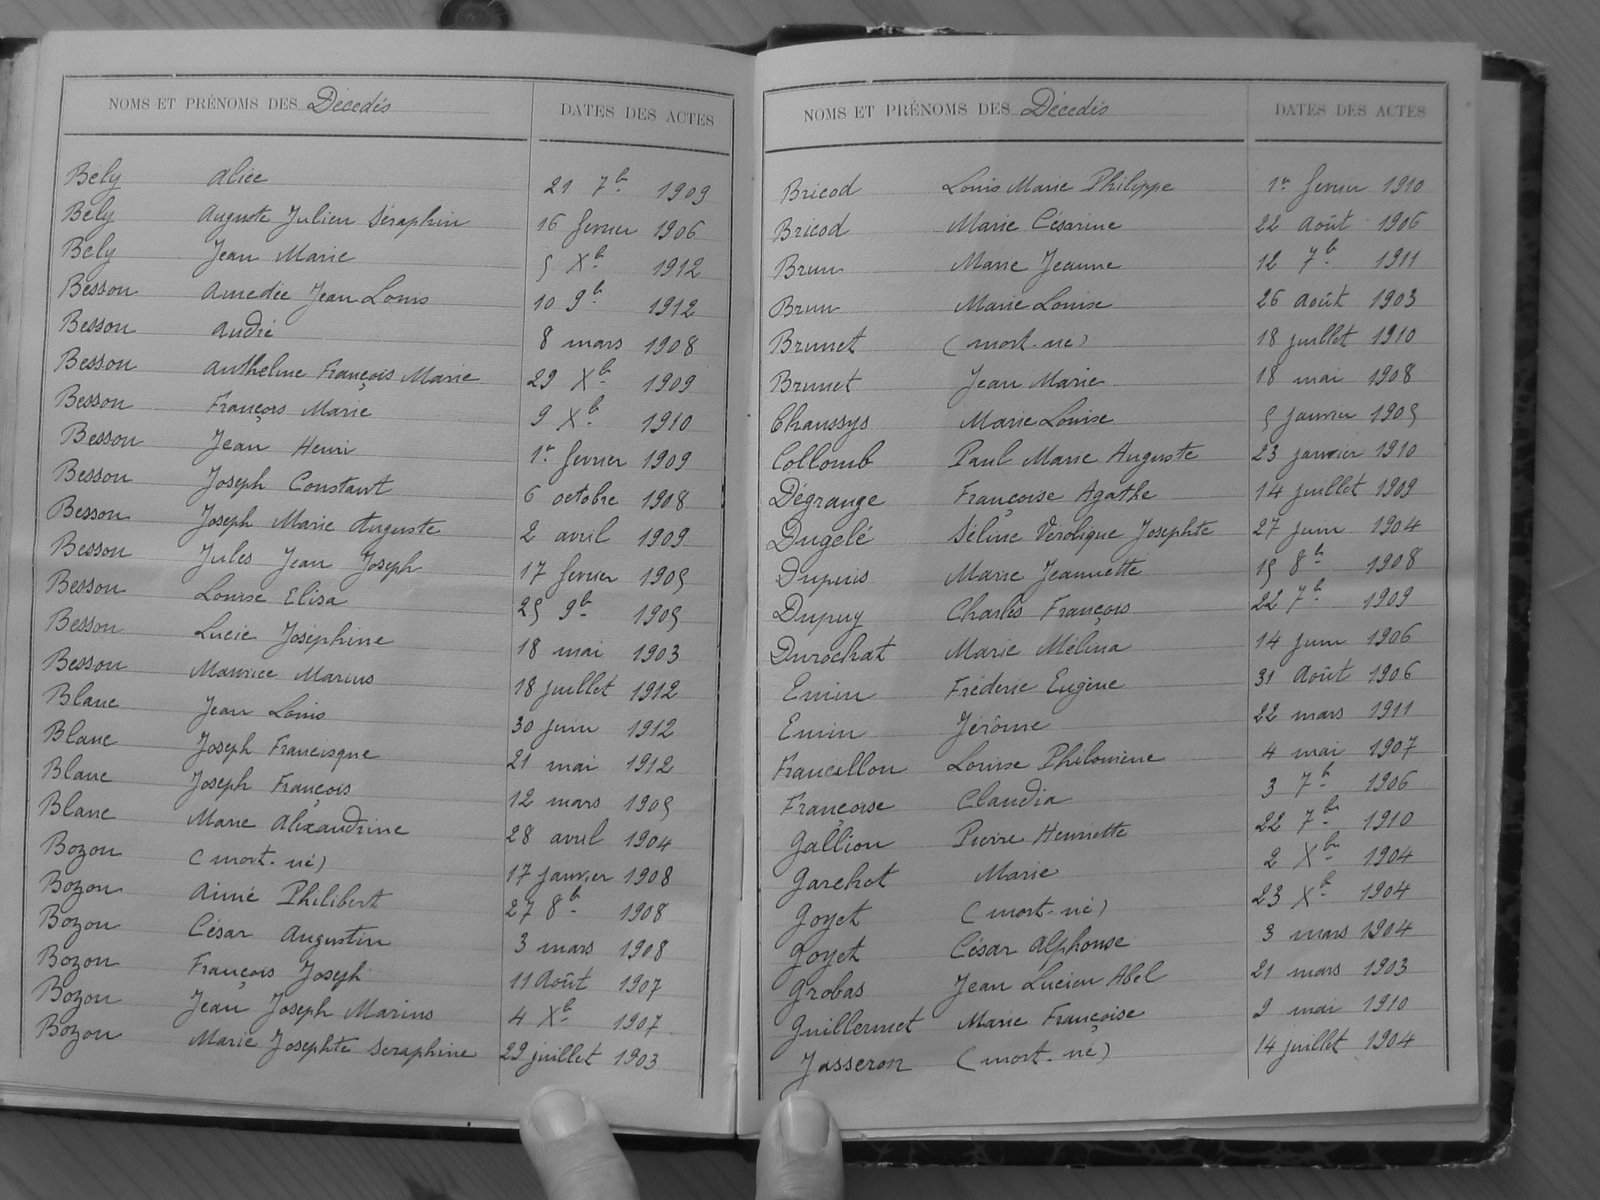 NOMS ET PRÉNOMS DES Décédés DATES DES ACTES
Bély Alice 21 7b. 1909
Bély Auguste Julien Séraphin 16 fevrier 1906
Bély Jean Marie 5 Xb. 1912
Besson Amédée Jean Louis 10 9b. 1912
Besson André 8 mars 1908
Besson Anthelme François Marie 29 Xb. 1909
Besson François Marie 9 Xb. 1910
Besson Jean Henri 1er fevrier 1909
Besson Joseph Constant 6 octobre 1908
Besson Joseph Marie Auguste 2 avril 1909
Besson Jules Jean Joseph 17 fevrier 1905
Besson Louise Elisa 25 9b. 1905
Besson Lucie Joséphine 18 mai 1903
Besson Maurice Marius 18 juillet 1912
Blanc Jean Louis 30 juin 1912
Blanc Joseph Francisque 21 mai 1912
Blanc Joseph François 12 mars 1905
Blanc Marie Alexandrine 28 avril 1904
Bozon (mort-né) 17 janvier 1908
Bozon Aimé Philibert 27 8b. 1908
Bozon César Augustin 3 mars 1908
Bozon François Joseph 11 Août 1907
Bozon Jean Joseph Marius 4 Xb. 1907
Bozon Marie Josephte Seraphine 29 juillet 1903
NOMS ET PRÉNOMS DES Décédés DATES DES ACTES
Bricod Louis Marie Philippe 1er fevrier 1910
Bricod Marie Césarine 22 Août 1906
Brun Marie Jeanne 12 7b. 1911
Brun Marie Louise 26 Août 1903
Brunet (mort-né) 18 juillet 1910
Brunet Jean Marie 18 mai 1908
Chaussys Marie Louise 5 janvier 1905
Collomb Paul Marie Auguste 23 janvier 1910
Dégrange Françoise Agathe 14 juillet 1909
Dugelé Séline Verolique Josephte 27 juin 1904
Dupuis Marie Jeannette 15 8b. 1908
Dupuy Charles François 22 7b. 1909
Durochat Marie Mélina 14 juin 1906
Emin Fréderic Eugène 31 Août 1906
Emin Jérôme 22 mars 1911
Francillon Louise Philomène 4 mai 1907
Françoise Claudia 3 7b. 1906
Gallion Pierre Henriette 22 7br. 1910
Garchot Marie 2 Xbr. 1904
Goyet (mort-né) 23 Xb. 1904
Goyet César Alphonse 3 mars 1904
Grobas Jean Lucien Abel 21 mars 1903
Guillermet Marie Françoise 9 mai 1910
Jasseron (mort-né) 14 juillet 1904